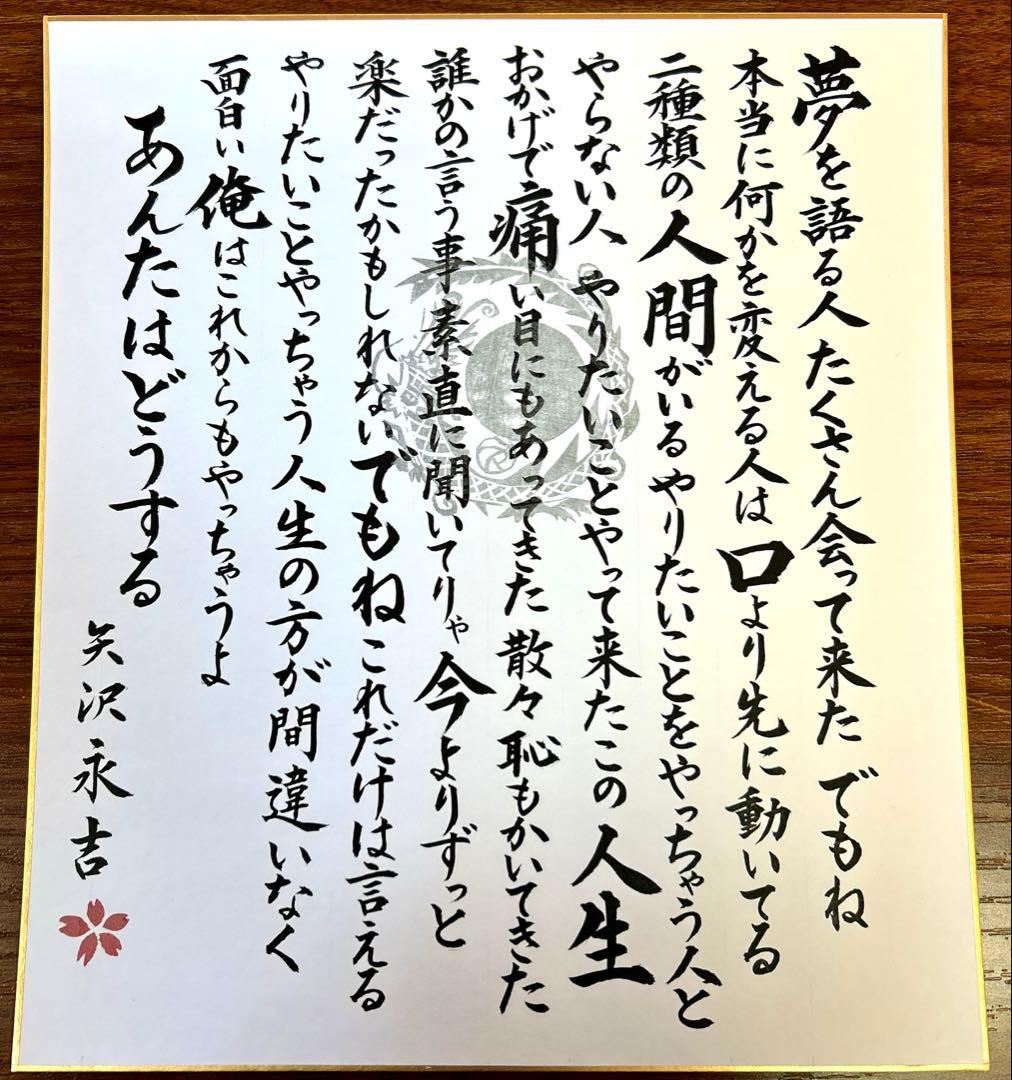 夢を語る人 たくさん会って来た でもね
本当に何かを変える人は口より先に動いてる
二種類の人間がいるやりたいことをやっちゃう人と
やらない人 やりたいことやって来たこの人生
おかげで痛い目にもあってきた 散々恥もかいてきた
誰かの言う事素直に聞いてりゃ今よりずっと
楽だったかもしれないでもねこれだけは言える
やりたいことやっちゃう人生の方が間違いなく
面白い俺はこれからもやっちゃうよ
あんたはどうする
矢沢永吉